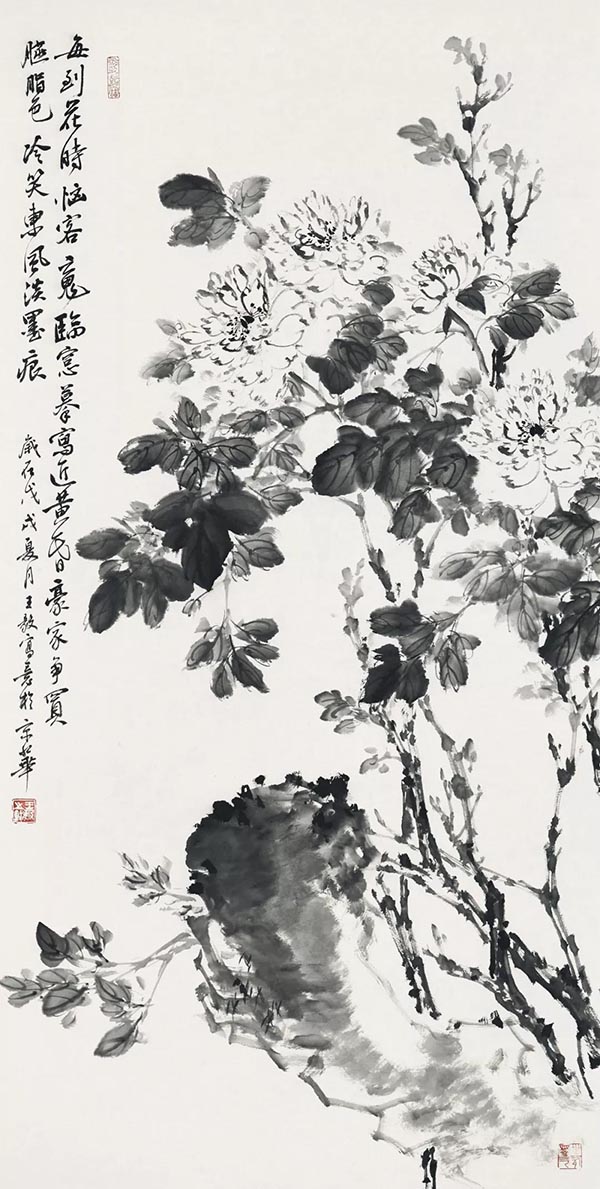 每到花時惱客魂臨窓摹寫近黃昏豪家爭買
臙脂色冷笑東風淡墨痕
歲在戊戌夏月王毅寫意於京華